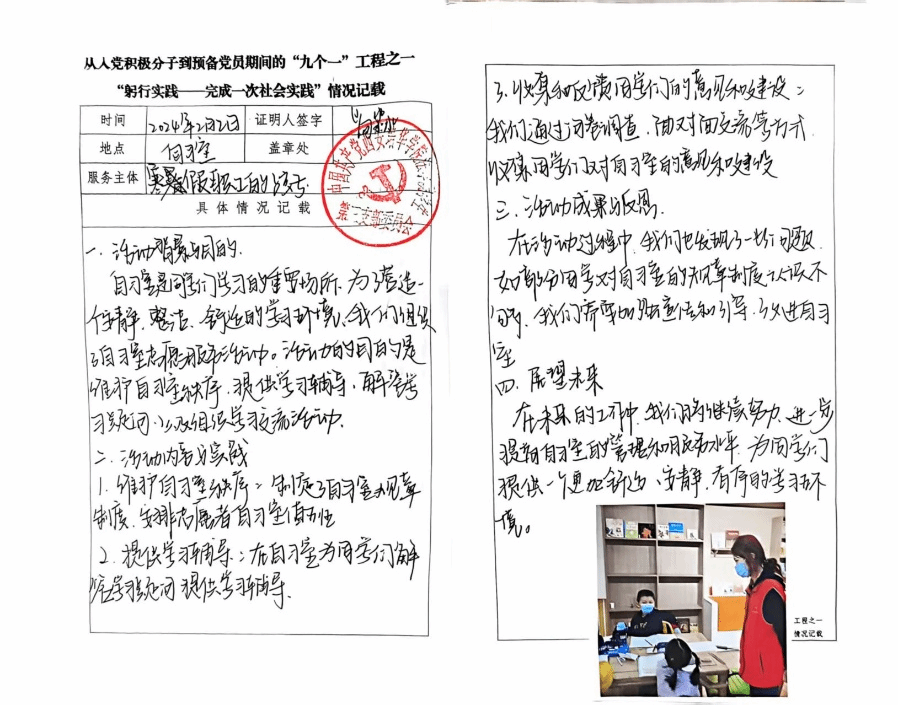 从入党积极分子到预备党员期间的“九个一”工程之一
“躬行实践——完成一次社会实践”情况记载
时间 2024年2月2日 证明人签字
地点 自习室 盖章处
服务主体 寒暑假职工的孩子
具体情况记载
一、活动背景与目的
自习室是同学们学习的重要场所,为了营造一
个安静、整洁、舒适的学习环境,我们组织
了自习室志愿服务活动。活动的目的是
维护自习室秩序,提供学习辅导,解答学
习疑问,以及组织学习交流活动.
二、活动内容与实践
1、维护自习室秩序:制定了自习室规章
制度,安排志愿者自习室值班
2、提供学习辅导:在自习室为同学们解
答学习疑问提供学习辅导.
3、收集和反馈同学们的意见和建设:
我们通过问卷调查,面对面交流等方式
收集同学们对自习室的意见和建设
三、活动成果与反思.
在活动过程中,我们也发现了一些问题,
如部分同学对自习室的规章制度认识不
够,我们需要加强宣传和引导,改进自习
室
四、展望未来
在未来的工作中,我们将继续努力,进一步
提高自习室的管理和服务水平,为同学们
提供一个更加舒适、安静、有序的学习环
境。
工程之一
情况记载
第三支部委员会